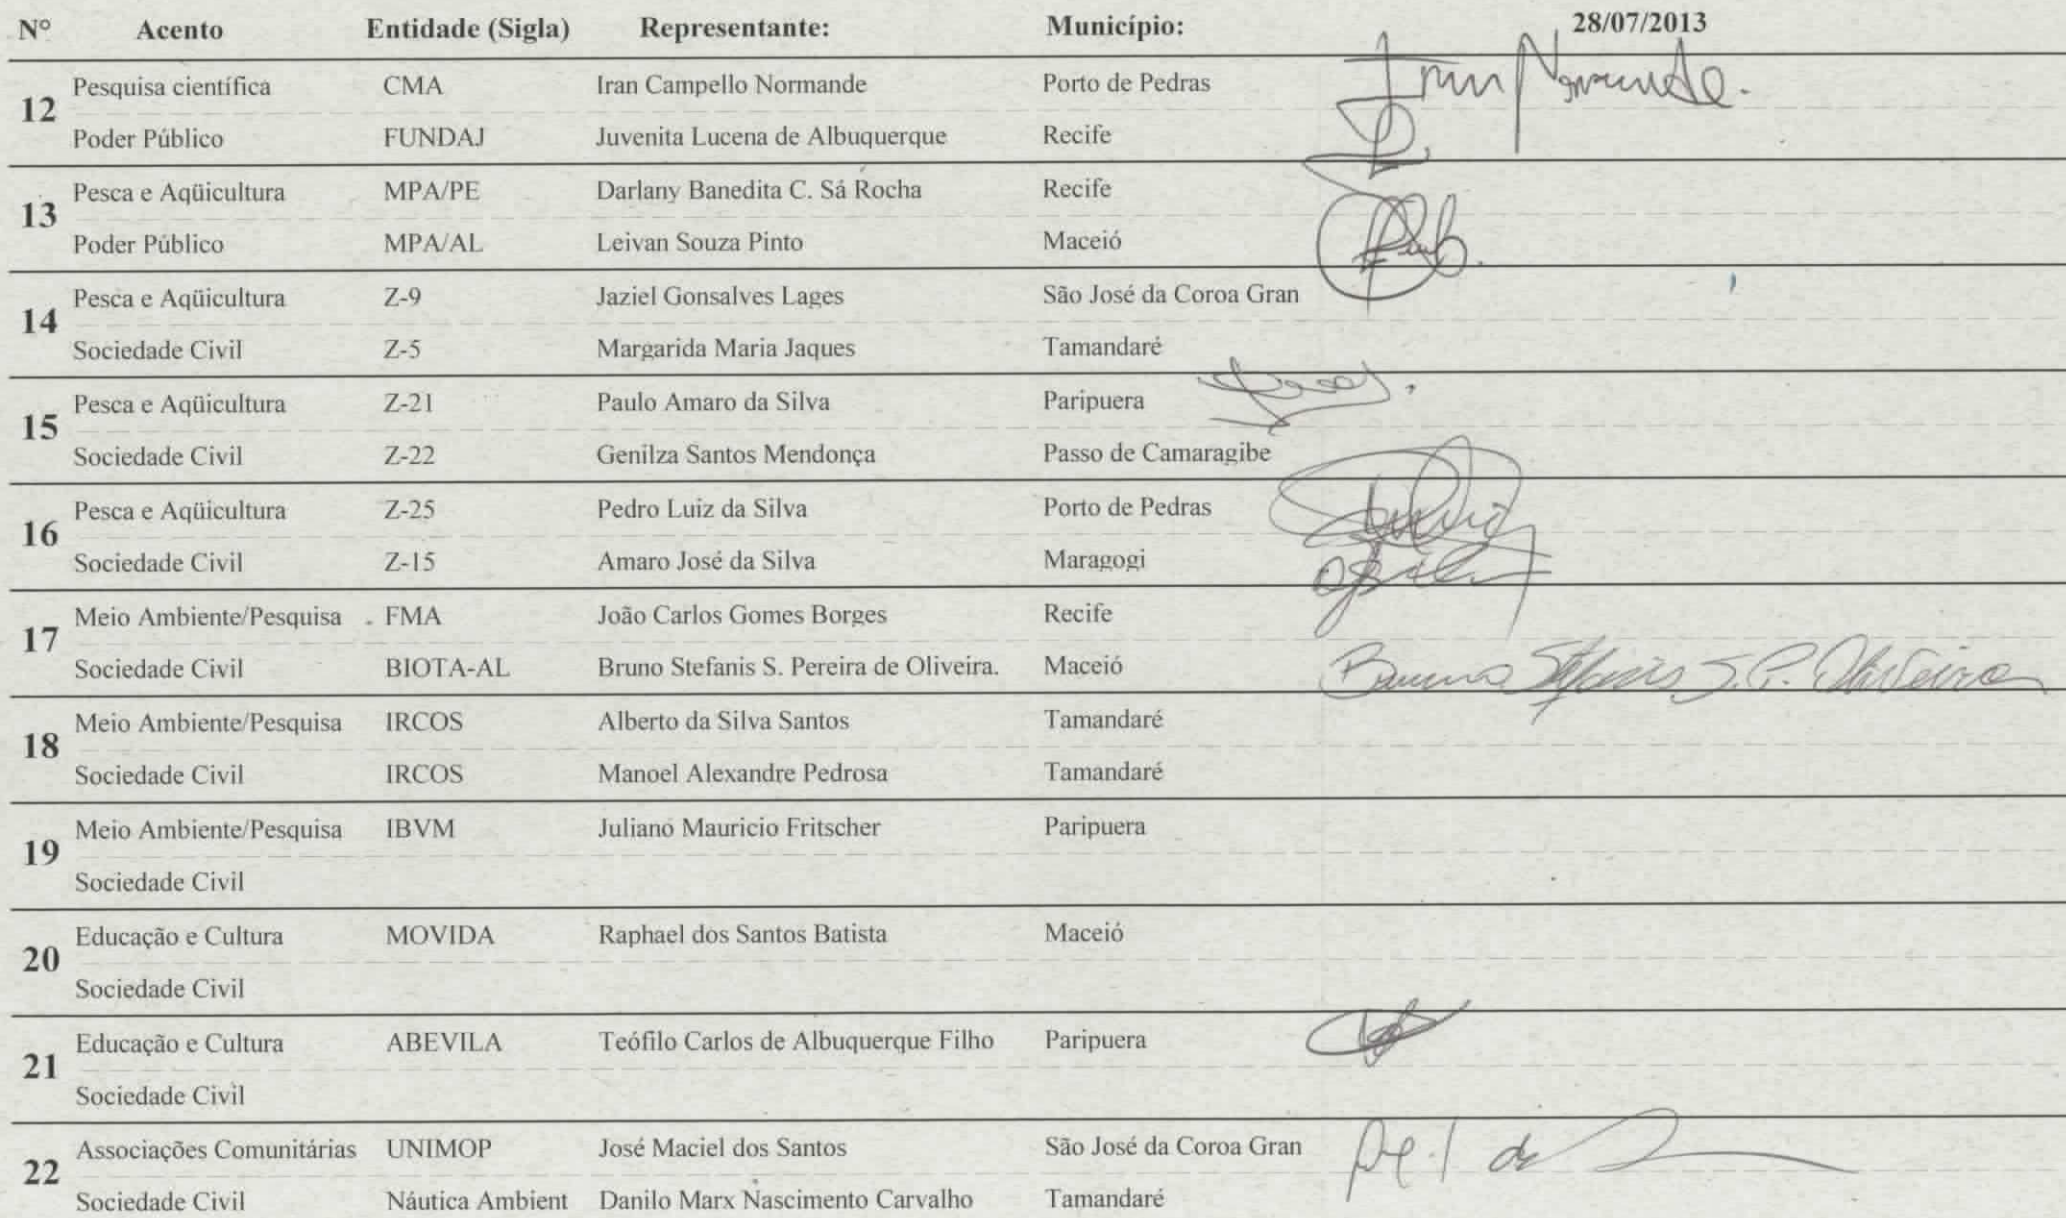 Nº Acento Entidade (Sigla) Representante: Município: 28/07/2013
12 Pesquisa científica CMA Iran Campello Normande Porto de Pedras Iran Normande.
Poder Público FUNDAJ Juvenita Lucena de Albuquerque Recife
13 Pesca e Aqüicultura MPA/PE Darlany Banedita C. Sá Rocha Recife
Poder Público MPA/AL Leivan Souza Pinto Maceió
14 Pesca e Aqüicultura Z-9 Jaziel Gonsalves Lages São José da Coroa Gran
Sociedade Civil Z-5 Margarida Maria Jaques Tamandaré
15 Pesca e Aqüicultura Z-21 Paulo Amaro da Silva Paripuera
Sociedade Civil Z-22 Genilza Santos Mendonça Passo de Camaragibe
16 Pesca e Aqüicultura Z-25 Pedro Luiz da Silva Porto de Pedras
Sociedade Civil Z-15 Amaro José da Silva Maragogi
17 Meio Ambiente/Pesquisa FMA João Carlos Gomes Borges Recife
Sociedade Civil BIOTA-AL Bruno Stefanis S. Pereira de Oliveira. Maceió Bruno Stefanis S. P. Oliveira
18 Meio Ambiente/Pesquisa IRCOS Alberto da Silva Santos Tamandaré
Sociedade Civil IRCOS Manoel Alexandre Pedrosa Tamandaré
19 Meio Ambiente/Pesquisa IBVM Juliano Mauricio Fritscher Paripuera
Sociedade Civil
20 Educação e Cultura MOVIDA Raphael dos Santos Batista Maceió
Sociedade Civil
21 Educação e Cultura ABEVILA Teófilo Carlos de Albuquerque Filho Paripuera
Sociedade Civil
22 Associações Comunitárias UNIMOP José Maciel dos Santos São José da Coroa Gran
Sociedade Civil Náutica Ambient Danilo Marx Nascimento Carvalho Tamandaré